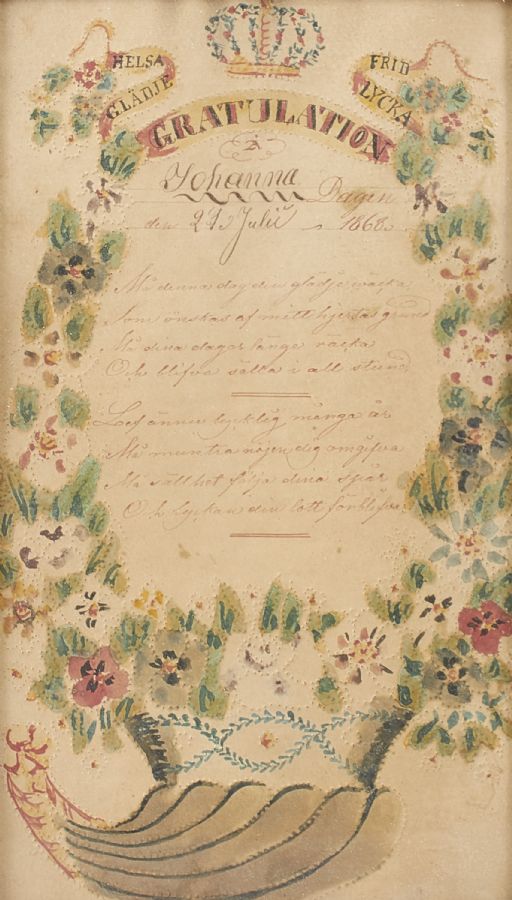 HELSA
GLÄDJE
FRID
LYCKA
GRATULATION
Å
Johanna Dagen
den 21 Julii 1868.
Må denna dag den glädje väcka
Som önskas af mitt hjertas grund
Må dina dagar länge räcka
Och blifva sälla i all stund
Lef ännu lycklig många år
Må muntra nöjen dig omgifva
Må sällhet följa dina spår
Och Lyckan din lott förblifva